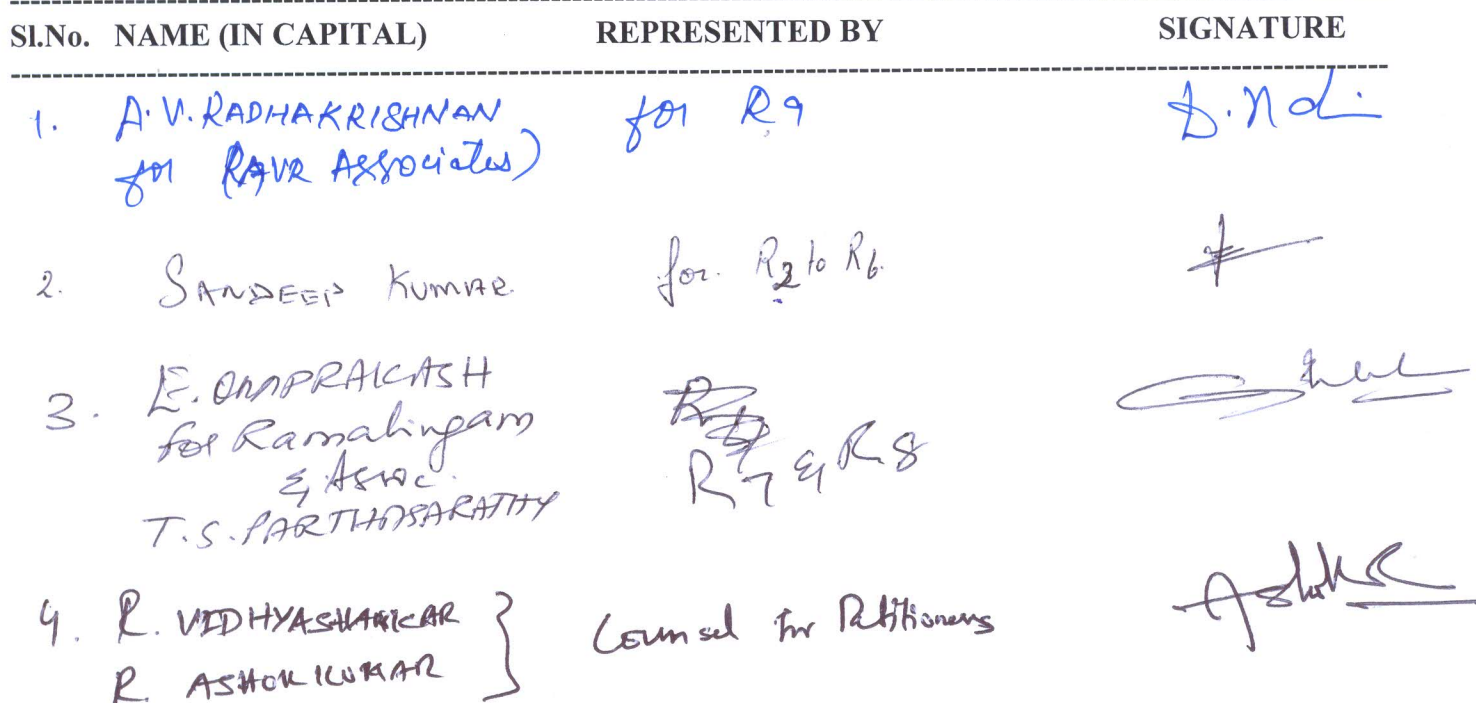 Sl.No. NAME (IN CAPITAL) REPRESENTED BY SIGNATURE
1. A.V. RADHAKRISHNAN for R9
for RAVR Associates)
2. SANDEEP KUMAR for R2 to R6.
3. E. OMAPRAKASH
for Ramalingam R7 & R8
& Assoc.
T.S. PARTHASARATHY
4. R. VIDHYASHANKAR Counsel for Petitioners
R. ASHOK KUMAR